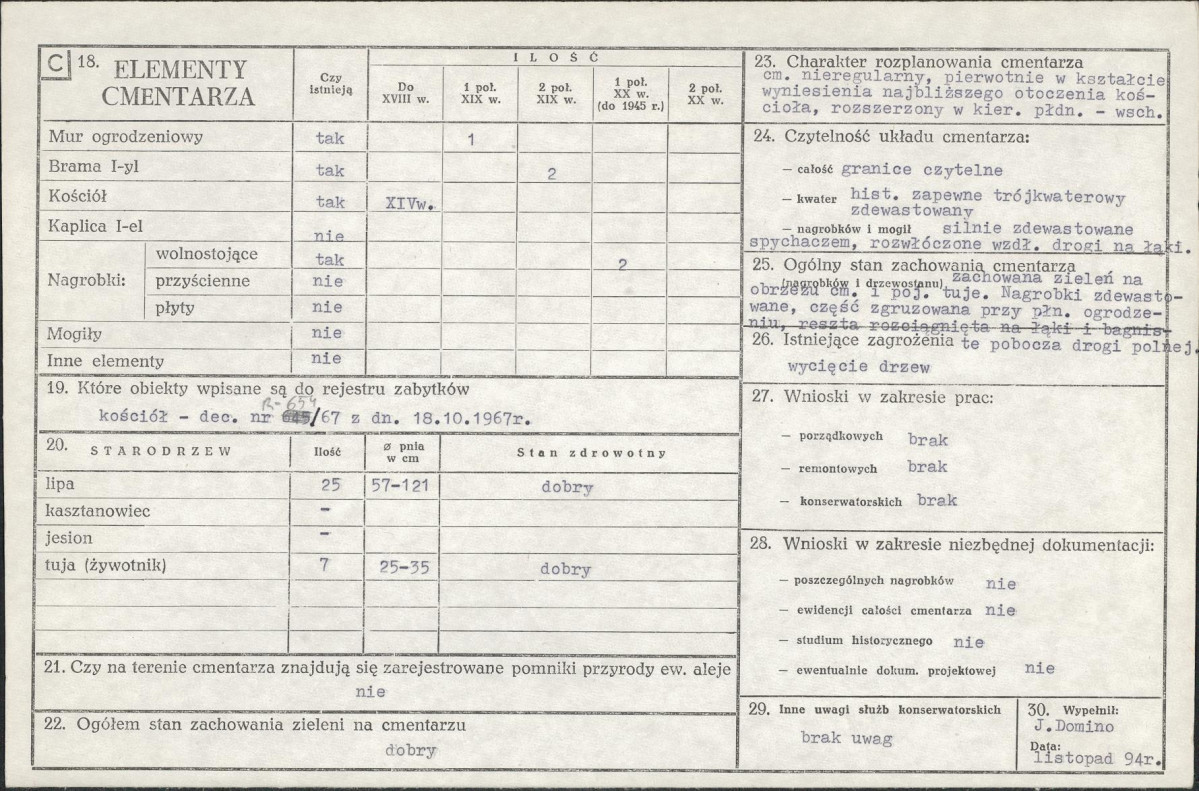 C 18. ELEMENTY CMENTARZA
Czy istnieją
ILOŚĆ
Do XVIII w.
1 poł. XIX w.
2 poł. XIX w.
1 poł. XX w. (do 1945 r.)
2 poł. XX w.
Mur ogrodzeniowy tak 1
Brama I-yl tak 2
Kościół tak XIVw.
Kaplica I-el nie
Nagrobki:
wolnostojące tak 2
przyścienne nie
płyty nie
Mogiły nie
Inne elementy nie
19. Które obiekty wpisane są do rejestru zabytków
R-654
kościół - dec. nr 645/67 z dn. 18.10.1967r.
20. STARODRZEW Ilość ø pnia w cm Stan zdrowotny
lipa 25 57-121 dobry
kasztanowiec -
jesion -
tuja (żywotnik) 7 25-35 dobry
21. Czy na terenie cmentarza znajdują się zarejestrowane pomniki przyrody ew. aleje
nie
22. Ogółem stan zachowania zieleni na cmentarzu
dobry
23. Charakter rozplanowania cmentarza
cm. nieregularny, pierwotnie w kształcie
wyniesienia najbliższego otoczenia koś-
cioła, rozszerzony w kier. płdn. - wsch.
24. Czytelność układu cmentarza:
— całość granice czytelne
— kwater hist. zapewne trójkwaterowy
zdewastowany
— nagrobków i mogił silnie zdewastowane
spychaczem, rozwłóczone wzdł. drogi na łąki.
25. Ogólny stan zachowania cmentarza
(nagrobków i drzewostanu) zachowana zieleń na
obrzeżu cm. i poj. tuje. Nagrobki zdewasto-
wane, część zgruzowana przy płn. ogrodze-
niu, reszta rozciągnięta na łąki i bagnis-
26. Istniejące zagrożenia te pobocza drogi polnej.
wycięcie drzew
27. Wnioski w zakresie prac:
— porządkowych brak
— remontowych brak
— konserwatorskich brak
28. Wnioski w zakresie niezbędnej dokumentacji:
— poszczególnych nagrobków nie
— ewidencji całości cmentarza nie
— studium historycznego nie
— ewentualnie dokum. projektowej nie
29. Inne uwagi służb konserwatorskich
brak uwag
30. Wypełnił:
J.Domino
Data:
listopad 94r.